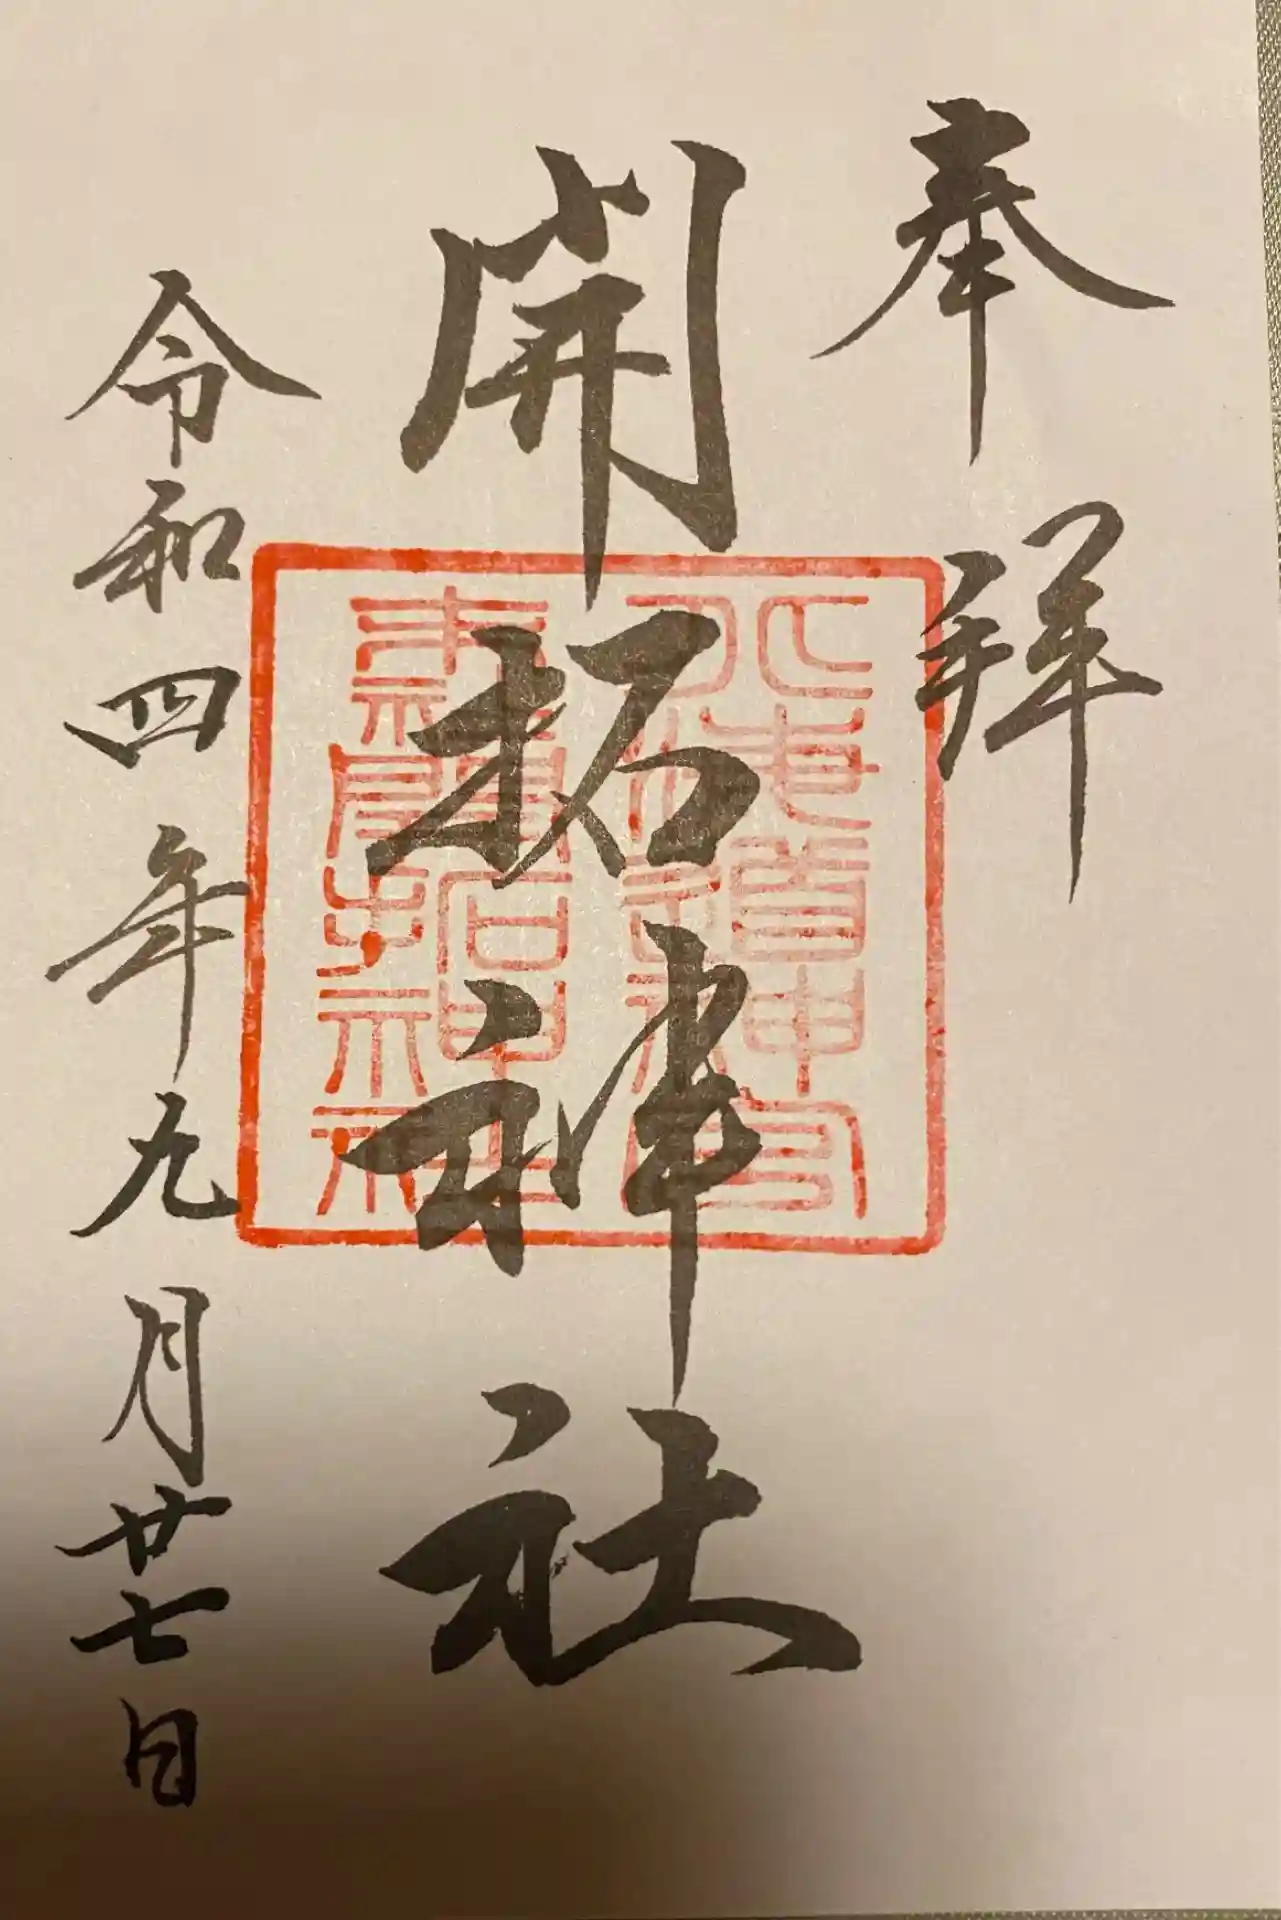 奉拝
開拓神社
令和四年九月廿七日
北海道神宮
末社開拓神社